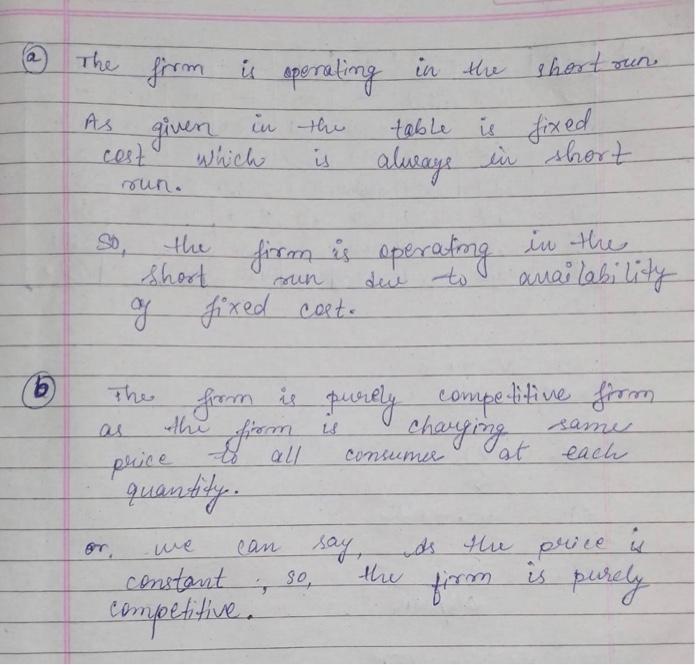 (a) The firm is operating in the short run.
As given in the table is fixed
cost which is always in short
run.
So, the firm is operating in the
short run due to availability
of fixed cost.
(b) The firm is purely competitive firm
as the firm is charging same
price to all consumer at each
quantity.
or, we can say, As the price is
constant, so, the firm is purely
competitive.